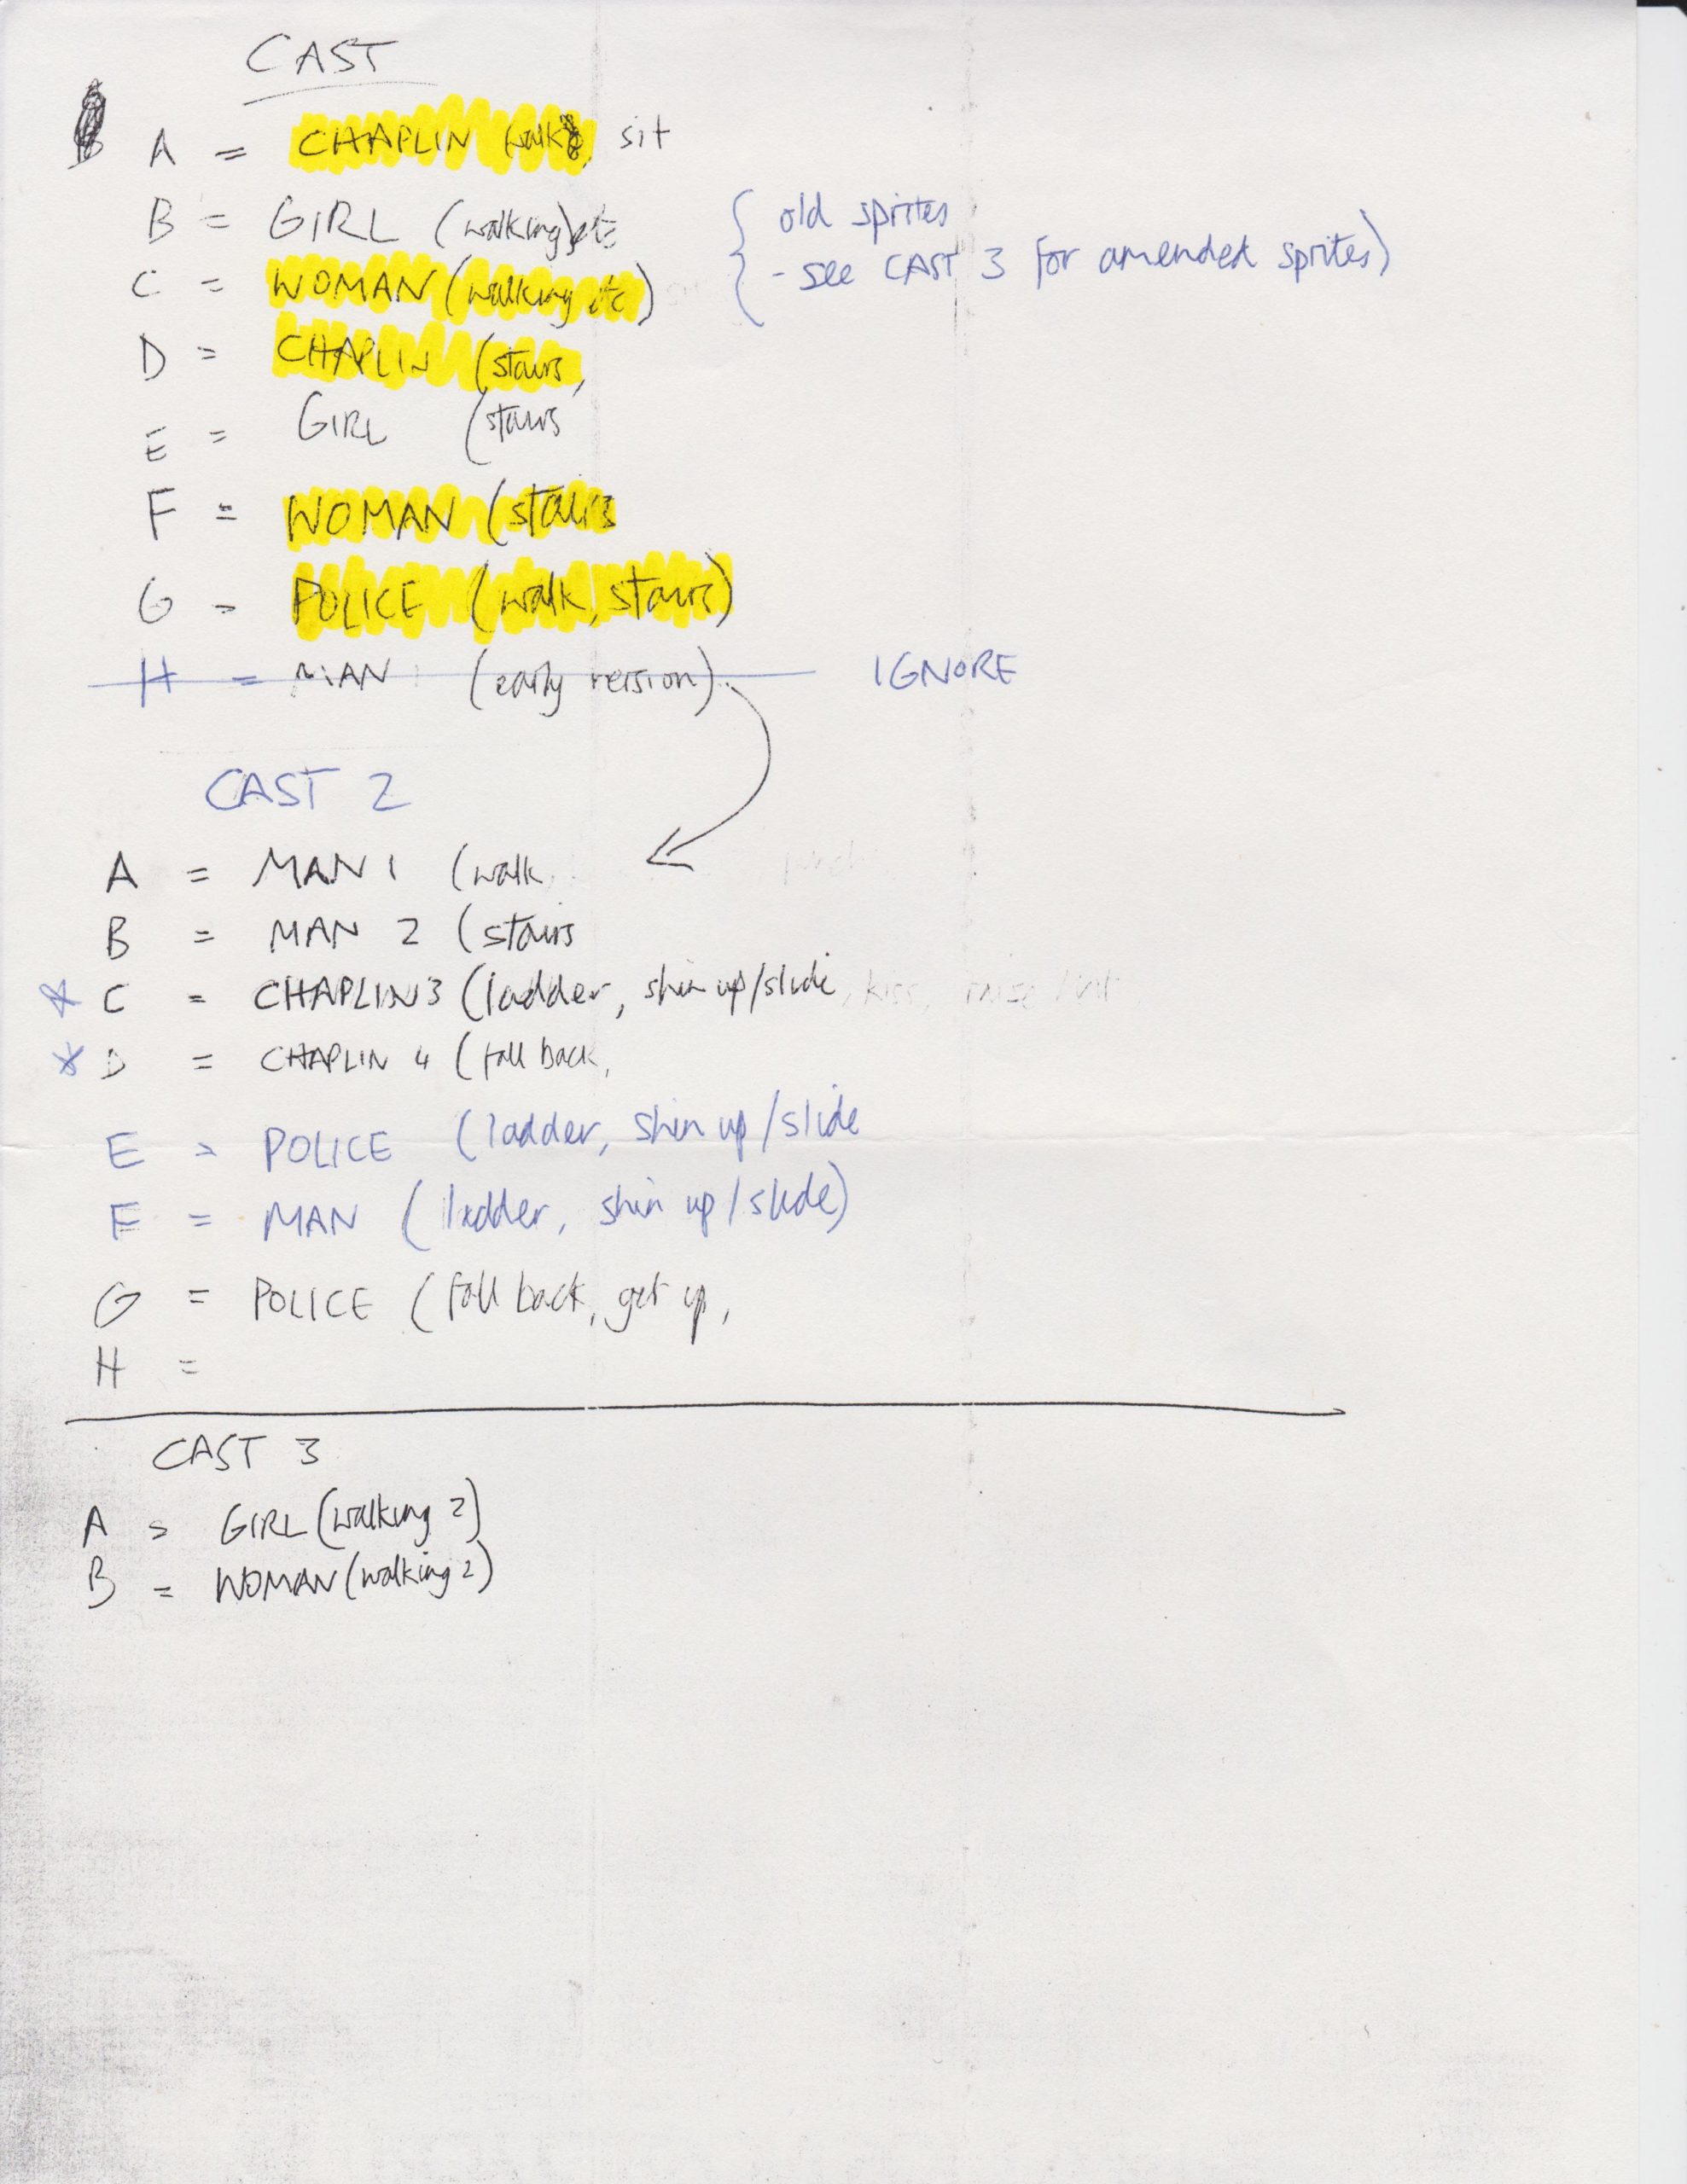 CAST
A = CHAPLIN (walk, sit
B = GIRL (walking) etc
C = WOMAN (walking etc)
{ old sprites
- see CAST 3 for amended sprites)
D = CHAPLIN (stairs,
E = GIRL (stairs
F = WOMAN (stairs
G = POLICE (walk, stairs)
H = MAN 1 (early version) IGNORE
CAST 2
A = MAN 1 (walk,
B = MAN 2 (stairs
C = CHAPLIN 3 (ladder, shin up/slide, kiss, raise /
D = CHAPLIN 4 (fall back,
E = POLICE (ladder, shin up/slide
F = MAN (ladder, shin up/slide)
G = POLICE (fall back, get up,
H =
CAST 3
A = GIRL (walking 2)
B = WOMAN (walking 2)